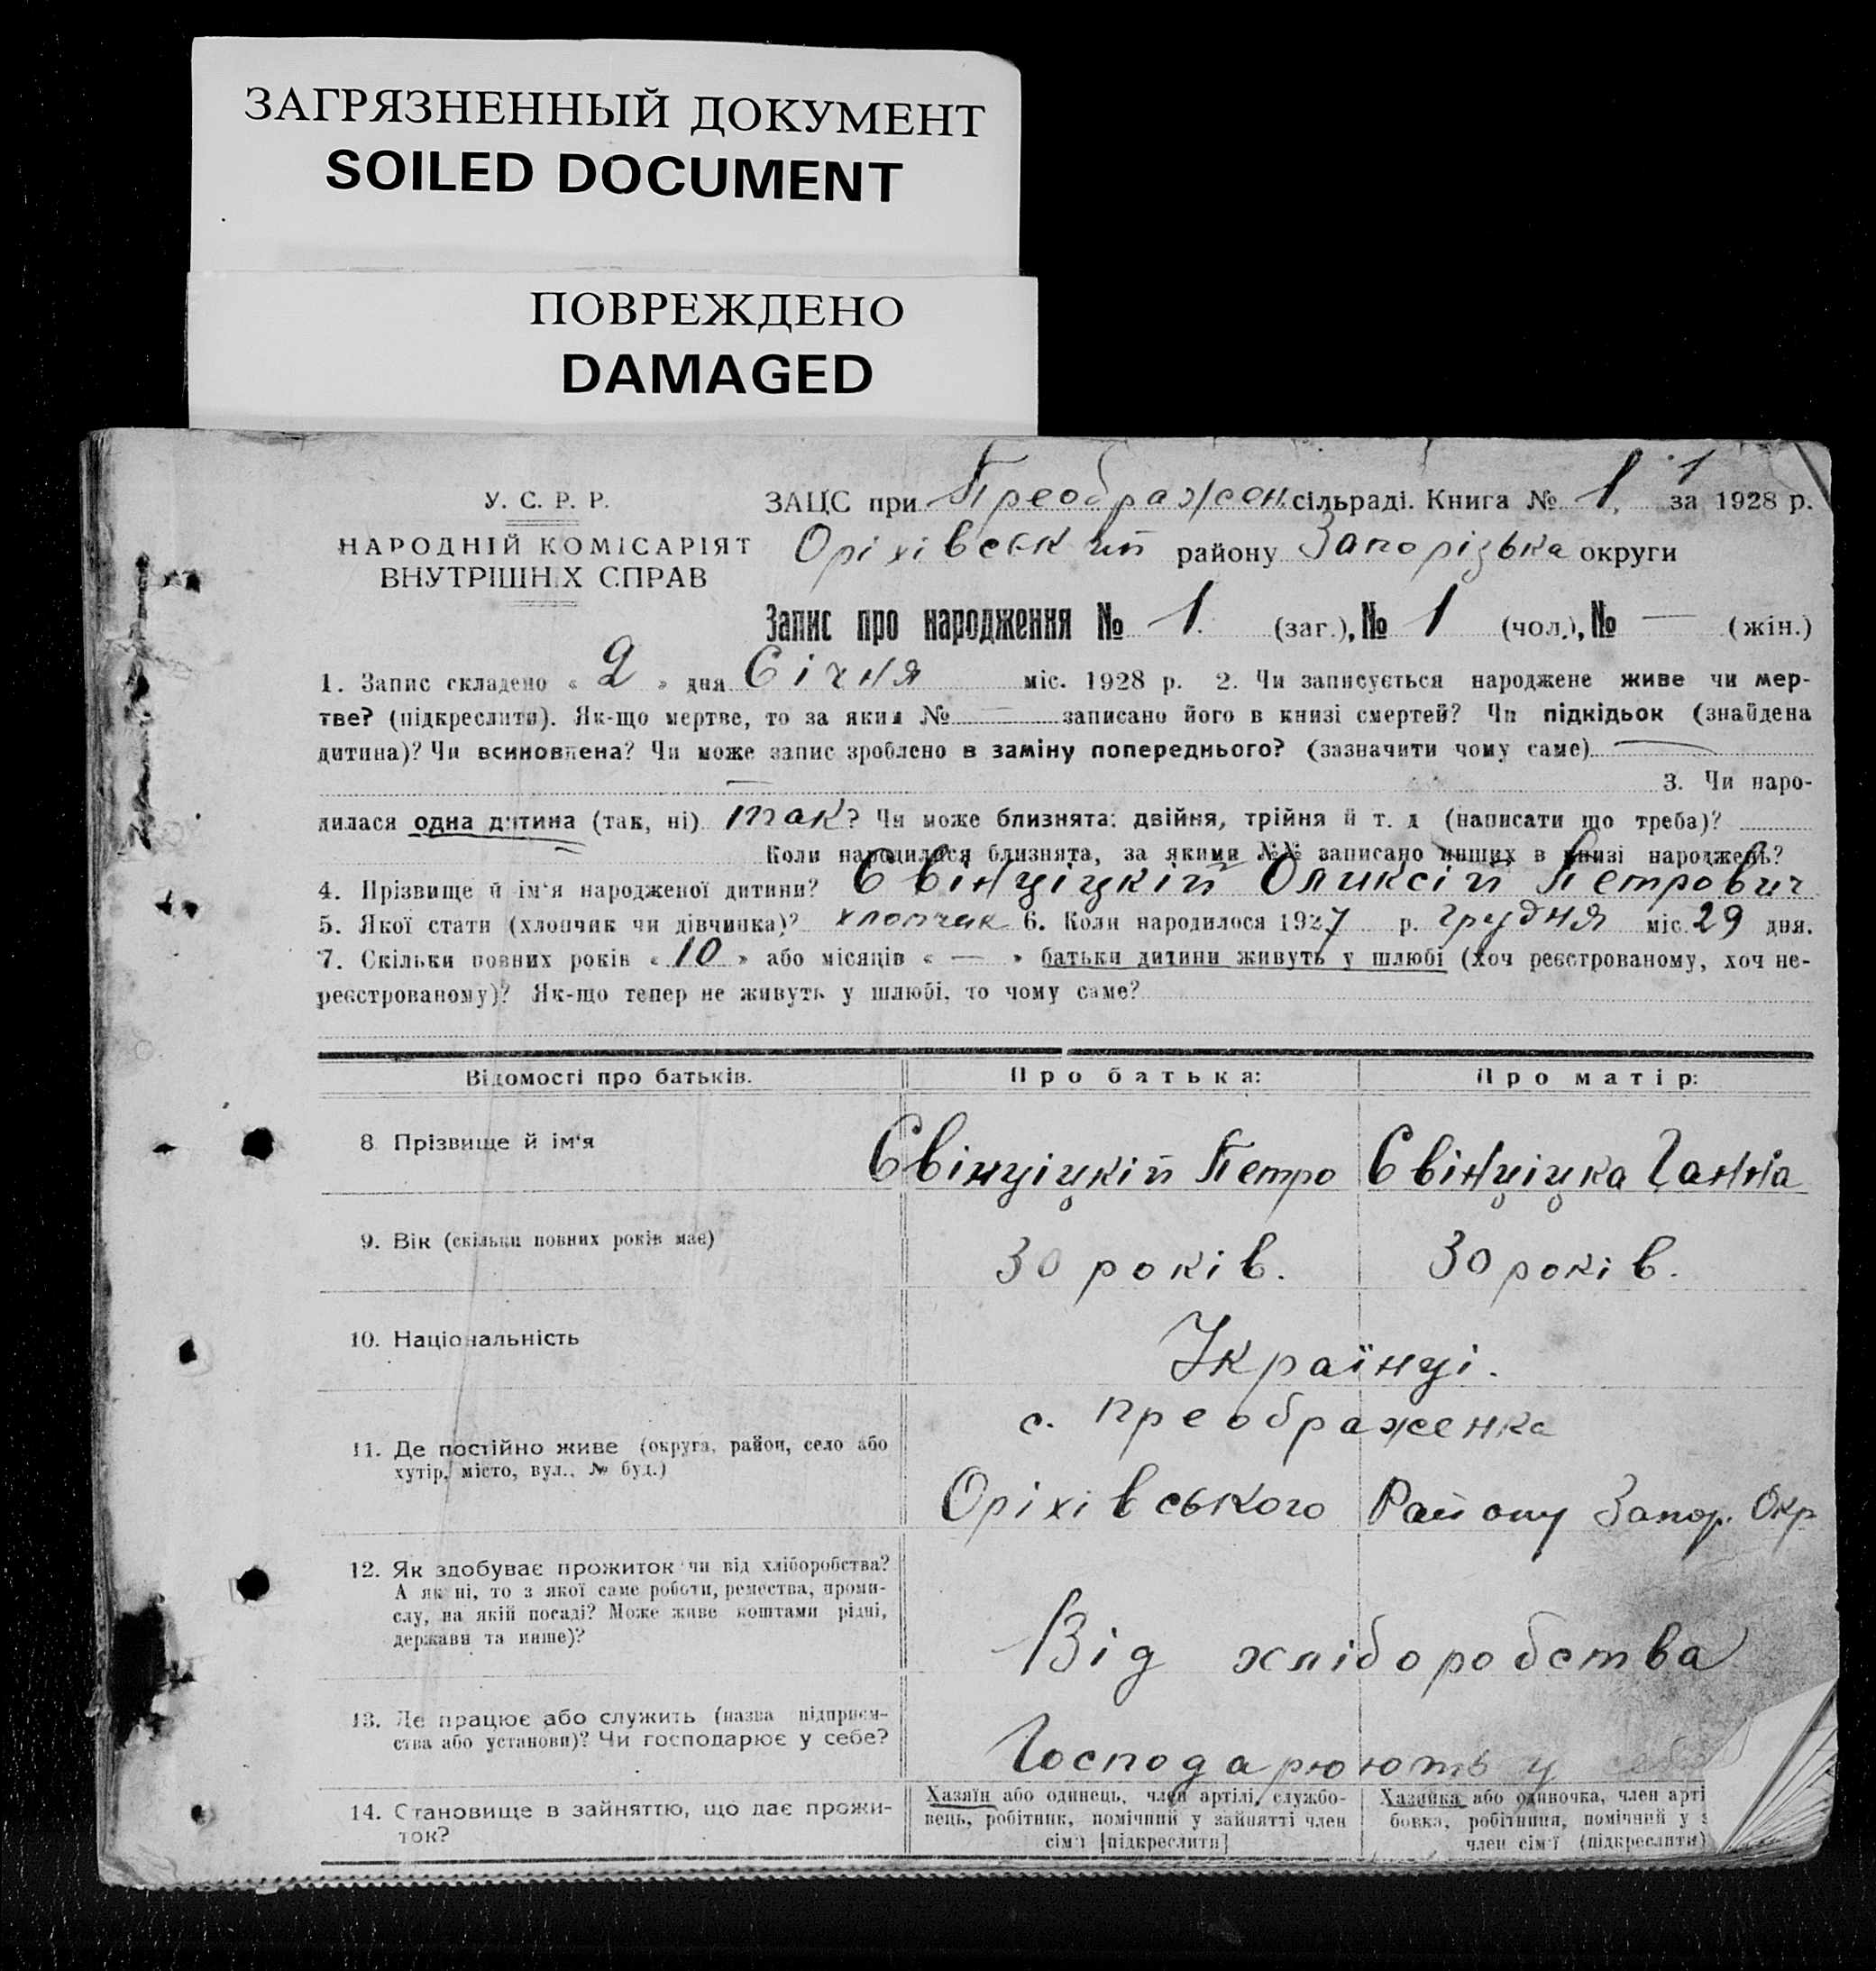 ЗАГРЯЗНЕННЫЙ ДОКУМЕНТ
SOILED DOCUMENT
ПОВРЕЖДЕНО
DAMAGED
У. С. Р. Р.
НАРОДНІЙ КОМІСАРІЯТ
ВНУТРІШНІХ СПРАВ
1
ЗАЦС при Преображен. сільраді. Книга № 1. за 1928 р.
Оріхівський району Запорізька округи
Запис про народження № 1. (заг.), № 1 (чол.), № — (жін.)
1. Запис складено « 2 » дня Січня міс. 1928 р. 2. Чи записується народжене живе чи мер-
тве? (підкреслити). Як-що мертве, то за яким № — записано його в книзі смертей? Чи підкідьок (знайдена
дитина)? Чи всиновлена? Чи може запис зроблено в заміну попереднього? (зазначити чому саме) —
— 3. Чи наро-
дилася одна дитина (так, ні) так? Чи може близнята: двійня, трійня й т. д (написати що треба)?
Коли народилися близнята, за якими №№ записано инших в книзі народжень?
4. Прізвище й ім'я народженої дитини? Свінціцкій Оликсій Петрович
5. Якої стати (хлопчик чи дівчинка)? хлопчик 6. Коли народилося 1927 р. грудня міс. 29 дня.
7. Скільки повних років « 10 » або місяців « — » батьки дитини живуть у шлюбі (хоч реєстрованому, хоч не-
реєстрованому)? Як-що тепер не живуть у шлюбі, то чому саме?
Відомості про батьків. Про батька: Про матір:
8 Прізвище й ім'я Свінціцкій Петро Свінціцка Ганна
9. Вік (скільки повних років має) 30 років. 30 років.
10. Національність Українці.
с. Преображенка
11. Де постійно живе (округа, район, село або
хутір, місто, вул., № буд.) Оріхівського Району Запор. Окр
12. Як здобуває прожиток чи від хліборобства?
А як ні, то з якої саме роботи, ремества, проми-
слу, на якій посаді? Може живе коштами рідні,
держави та инше)? Від хліборобства
13. Де працює або служить (назва підприєм-
ства або установи)? Чи господарює у себе? Господарюють у себе
14. Становище в зайняттю, що дає прожи-
ток?
Хазяїн або одинець, член артілі, службо-
вець, робітник, помічний у зайнятті член
сім'ї [підкреслити]
Хазяйка або одиночка, член арті
бовка, робітниця, помічний у з
член сім'ї (підкреслити)